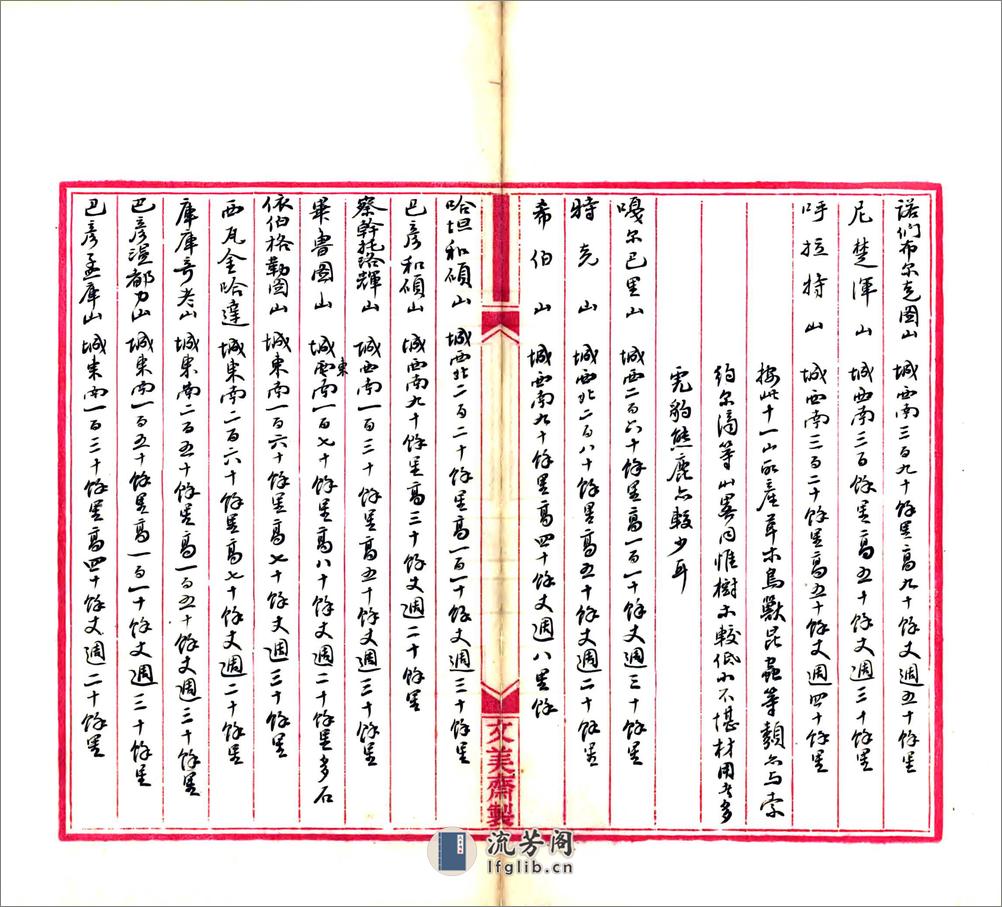 諾們布尔克圖山 城西南三百九十餘里高九十餘丈週五十餘里
尼楚渾山 城西南三百餘里高五十餘丈週三十餘里
呼拉特山 城西南三百二十餘里高五十餘丈週四十餘里
按此十一山所產草木鳥獸昆蟲等類亦与索
約尔濟等山畧同惟樹木較低小不堪材用者多
虎豹熊鹿亦較少耳
嘎尔巴里山 城西二百六十餘里高一百一十餘丈週三十餘里
特克山 城西北二百八十餘里高五十餘丈週二十餘里
希伯山 城西南九十餘里高四十餘丈週八里餘
文美齋製
哈坦和碩山 城西北二百二十餘里高一百一十餘丈週三十餘里
巴彥和碩山 城西南九十餘里高三十餘丈週二十餘里
察幹托洛輝山 城西南一百三十餘里高五十餘丈週三十餘里
畢書圖山 城東南一百七十餘里高八十餘丈週二十餘里多石
依伯格勒圖山 城東南一百六十餘里高七十餘丈週三十餘里
西瓦金哈達 城東南二百六十餘里高七十餘丈週二十餘里
庫庫奇老山 城東南二百五十餘里高一百五十餘丈週三十餘里
巴彥溫都力山 城東南一百五十餘里高一百一十餘丈週三十餘里
巴彥孟庫山 城東南一百三十餘里高四十餘丈週二十餘里
流芳阁
lfglib.cn